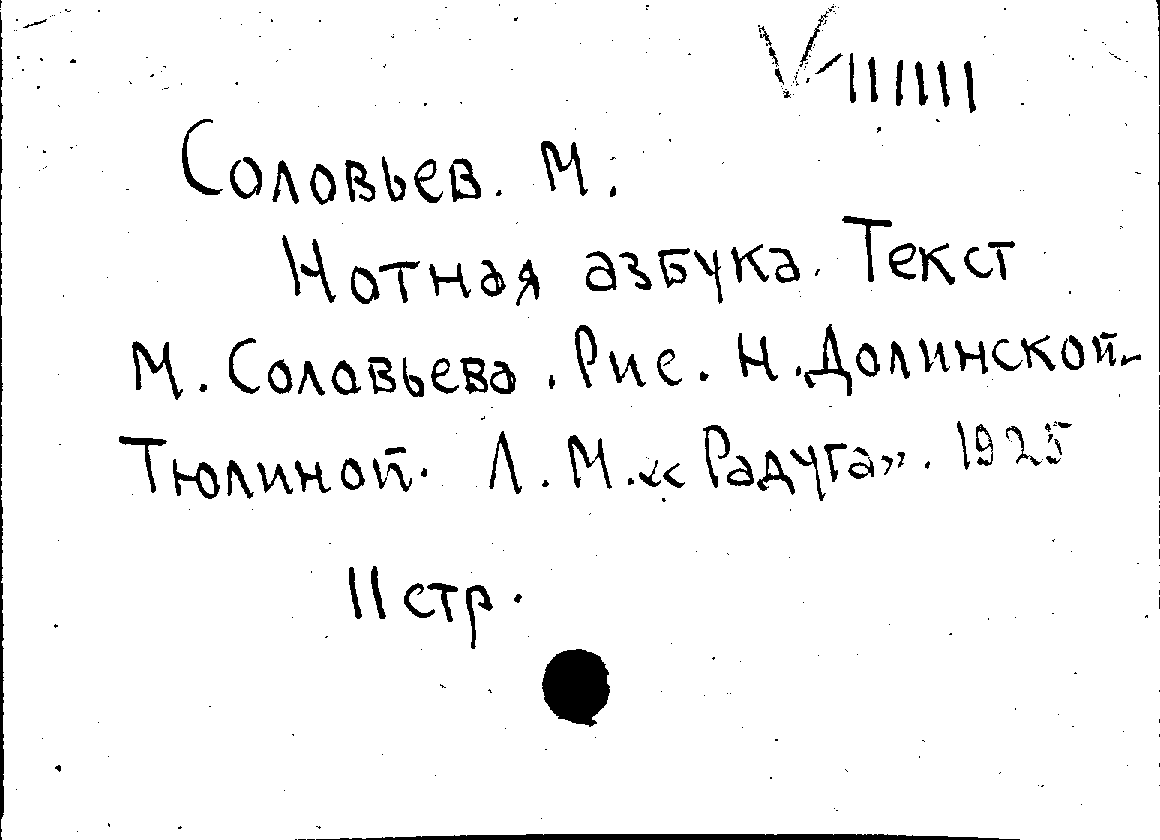 Соловьев. М.
Нотная азбука. Текст
М. Соловьева. Рис. Н. Долинской-
Тюлиной. Л. М. «Радуга». 1925
11 стр.